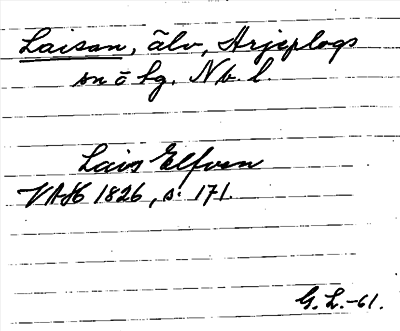 Laisan, älv, Arjeplogs
sn o lg. Nb. l.
Lais Elfven
VAH 1826, s. 171.
G. L. -61.